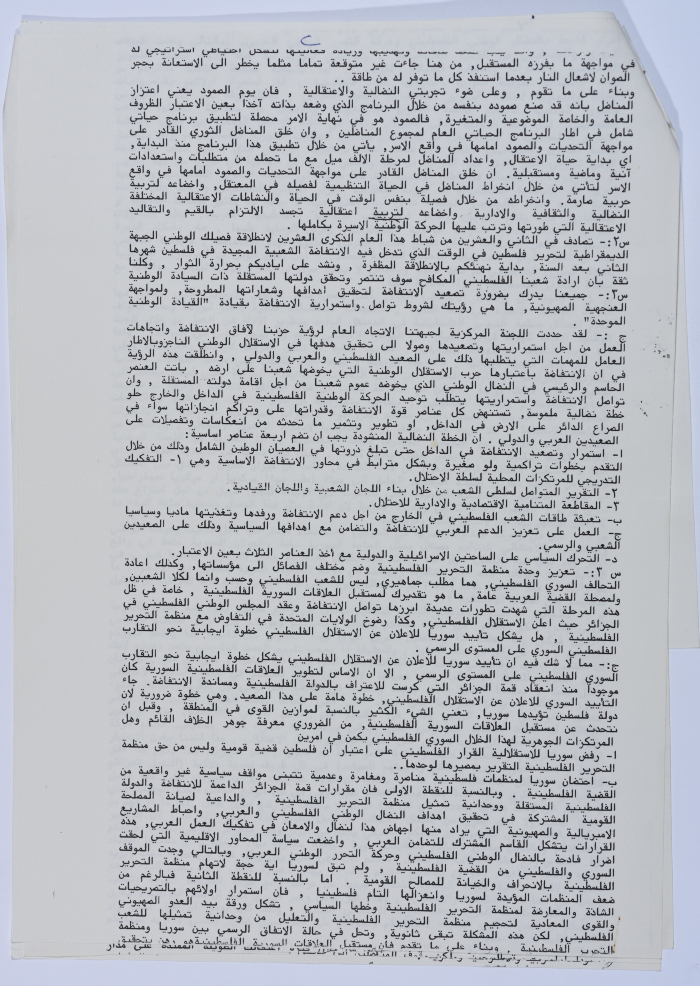 في مواجهة ما يفرزه المستقبل, من هنا جاءت غير متوقعة تماما مثلما يخطر الى الاستعانة بحجر
الصوان لاشعال النار بعدما استنفذ كل ما توفر له من طاقة ..
وبناء على ما تقوم , وعلى ضوء تجربتي النضالية والاعتقالية , فان يوم الصمود يعني اعتزاز
المناضل بانه قد صنع صموده بنفسه من خلال البرنامج الذي وضعه بذاته آخذا بعين الاعتبار الظروف
العامة والخاصة الموضوعية والمتغيرة, فالصمود هو في نهاية الامر محصلة لتطبيق برنامج حياتي
شامل في اطار البرنامج الحياتي العام لمجموع المناضلين , وان خلق المناضل الثوري القادر على
مواجهة التحديات والصمود امامها في واقع الاسر, يأتي من خلال تطبيق هذا البرنامج منذ البداية,
اي بداية حياة الاعتقال, واعداد المناضل لمرحلة الالف ميل مع ما تحمله من متطلبات واستعدادات
آنية وماضية ومستقبلية. ان خلق المناضل القادر على مواجهة التحديات والصمود امامها في واقع
الاسر لتأتي من خلال انخراط المناضل في الحياة التنظيمية لفصيله في المعتقل, واخضاعه لتربية
حربية صارمة. وانخراطه من خلال فصيلة بنفس الوقت في الحياة والنشاطات الاعتقالية المختلفة
النضالية والثقافية والادارية واخضاعه لتربية اعتقالية تجسد الالتزام بالقيم والتقاليد
الاعتقالية التي طورتها وترتب عليها الحركة الوطنية الاسيرة بكاملها .
س٢:- تصادف في الثاني والعشرين من شباط هذا العام الذكرى العشرين لانطلاقة فصيلك الوطني الجبهة
الديمقراطية لتحرير فلسطين في الوقت الذي تدخل فيه الانتفاضة الشعبية المجيدة في فلسطين شهرها
الثاني بعد السنة, بداية نهنئكم بالانطلاقة المظفرة , ونشد على اياديكم بحرارة الثوار , وكلنا
ثقة بان ارادة شعبنا الفلسطيني المكافح سوف تنتصر وتحقق دولتها المستقلة ذات السيادة الوطنية
س٣:- جميعنا يدرك بضرورة تصعيد الانتفاضة لتحقيق اهدافها وشعاراتها المطروحة, ولمواجهة
العنجهية الصهيونية, ما هي رؤيتك لشروط تواصل واستمرارية الانتفاضة بقيادة "القيادة الوطنية
الموحدة"
ج :- لقد حددت اللجنة المركزية لجبهتنا الاتجاه العام لرؤية حزبنا لآفاق الانتفاضة واتجاهات
العمل من اجل استمراريتها وتصعيدها وصولا الى تحقيق هدفها في الاستقلال الوطني الناجزوبالاطار
العامل للمهمات التي يتطلبها ذلك على الصعيد الفلسطيني والعربي والدولي , وانطلقت هذه الرؤية
في ان الانتفاضة باعتبارها حرب الاستقلال الوطنية التي يخوضها شعبنا على ارضه , باتت العنصر
الحاسم والرئيسي في النضال الوطني الذي يخوضه عموم شعبنا من اجل اقامة دولته المستقلة , وان
تواصل الانتفاضة واستمراريتها يتطلب توحيد الحركة الوطنية الفلسطينية في الداخل والخارج حلو
خطة نضالية ملموسة, تستنهض كل عناصر قوة الانتفاضة وقدراتها وعلى وتراكم انجازاتها سواء في
الصراع الدائر على الارض في الداخل, او تطوير وتثمير ما تحدثه من انعكاسات وتفصيلات على
الصعيدين العربي والدولي . ان الخطة النضالية المنشودة يجب ان تضم اربعة عناصر اساسية:
ا- استمرار وتصعيد الانتفاضة في الداخل حتى تبلغ ذروتها في العصيان الوطني الشامل وذلك من خلال
التقدم بخطوات تراكمية ولو صغيرة وبشكل مترابط في محاور الانتفاضة الاساسية وهي ١- التفكيك
التدريجي للمرتكزات المحلية لسلطة الاحتلال.
٢- التقرير المتواصل لسلطى الشعب من خلال بناء اللجان الشعبية واللجان القيادية.
٣- المقاطعة المتنامية الاقتصادية والادارية للاحتلال.
ب- تعبئة طاقات الشعب الفلسطيني في الخارج من اجل دعم الانتفاضة ورفدها وتغذيتها ماديا وسياسيا
ج- العمل على تعزيز الدعم العربي للانتفاضة والتضامن مع اهدافها السياسية وذلك على الصعيدين
الشعبي والرسمي.
د- التحرك السياسي على الساحتين الاسرائيلية والدولية مع أخذ العناصر الثلاث بعين الاعتبار.
س ٣:- تعزيز وحدة منظمة التحرير الفلسطينية وضم مختلف الفصائل الى مؤسساتها, وكذلك اعادة
التحالف السوري الفلسطيني, هما مطلب جماهيري, ليس للشعب الفلسطيني وحسب وانما لكلا الشعبين,
ولمصحلة القضية العربية عامة, ما هو تقديرك لمستقبل العلاقات السورية الفلسطينية , خاصة في ظل
هذه المرحلة التي شهدت تطورات عديدة ابرزها تواصل الانتفاضة وعقد المجلس الوطني الفلسطيني في
الجزائر حيث اعلن الاستقلال الفلسطيني, وكذا رضوخ الولايات المتحدة في التفاوض مع منظمة التحرير
الفلسطينية , هل يشكل تأييد سوريا للاعلان عن الاستقلال الفلسطيني خطوة ايجابية نحو التقارب
الفلسطيني السوري على المستوى الرسمي .
ج:- مما لا شك فيه ان تأييد سوريا للاعلان عن الاستقلال الفلسطيني يشكل خطوة ايجابية نحو التقارب
السوري الفلسطيني على المستوى الرسمي , الا ان الاساس لتطوير العلاقات الفلسطينية السورية كان
موجوداً منذ انعقاد قمة الجزائر التي كرست للاعتراف بالدولة الفلسطينية ومساندة الانتفاضة. جاء
التأييد السوري للاعلان عن الاستقلال الفلسطيني, خطوة هامة على هذا الصعيد. وهي خطوة ضرورية لان
دولة فلسطين تؤيدها سوريا, تعني الشيء الكثير بالنسبة لموازين القوى في المنطقة , وقبل ان
نتحدث عن مستقبل العلاقات السورية الفلسطينية, من الضروري معرفة جوهر الخلاف القائم وهل
المرتكزات الجوهرية لهذا الخلال السوري الفلسطيني يكمن في امرين
ا- رفض سوريا للاستقلالية القرار الفلسطيني على اعتبار ان فلسطين قضية قومية وليس من حق منظمة
التحرير الفلسطينية التقرير بمصيرها لوحدها..
ب- احتضان سوريا لمنظمات فلسطينية مناصرة ومغامرة وعدمية تتبنى مواقف سياسية غير واقعية من
القضية الفلسطينية . وبالنسبة للنقطة الاولى فان مقرارات قمة الجزائر الداعمة للانتفاضة والدولة
الفلسطينية المستقلة ووحدانية تمثيل منظمة التحرير الفلسطينية , والداعية لصيانة المملحة
القومية المشتركة في تحقيق اهداف النضال الوطني الفلسطيني والعربي, واحباط المشاريع
الامبريالية والصهيونية التي يراد منها اجهاض هذا لنضال والامعان في تفكيك العمل العربي, هذه
القرارات يتشكل القاسم المشترك للتضامن العربي , واخضعت سياسة المحاور الاقليمية التي لحقت
اضرار فادحة بالنضال الوطني الفلسطيني وحركة التحرر الوطني العربي, وبالتالي وجدت الموقف
السوري والفلسطيني من القضية الفلسطينية , ولم تبق لسوريا اية حجة لاتهام منظمة التحرير
الفلسطينية بالانحراف والخيانة للمصالح القومية . اما بالنسبة للنقطة الثانية فبالرغم من
ضعف المنظمات المؤيدة لسوريا وانعزالها التام فلسطينيا , فان استمرار اولائهم بالتصريحات
الشاذة والمعارضة لمنظمة التحرير الفلسطينية وخطها السياسي , تشكل ورقة بيد العدو الصهيوني
والقوى المعادية لتحجيم منظمة التحرير الفلسطينية والتعليل من وحدانية تمثيلها للشعب
الفلسطيني, لكن هذه المشكلة تبقى ثانوية, وتحل في حالة الاتفاق الرسمي بين سوريا ومنظمة
التحرير الفلسطينية , وبناء على ما تقدم فان مستقبل العلاقات السورية الفلسطينية